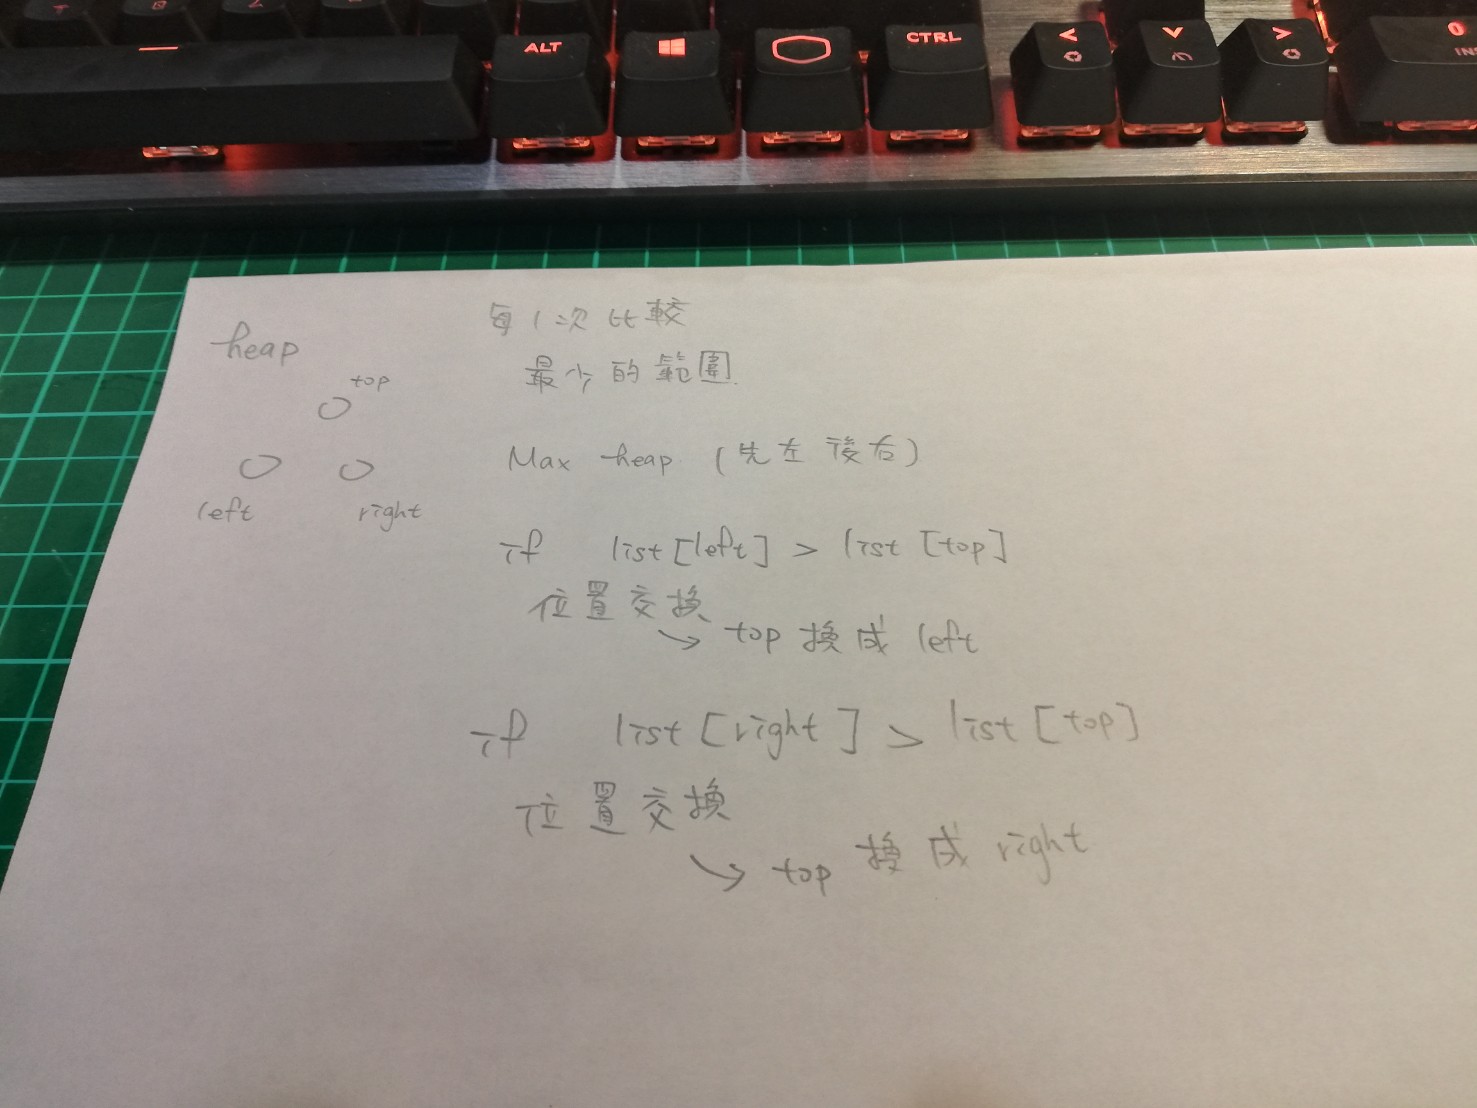 ALT
CTRL
INS
heap
top
left
right
每1次比較
最少的範圍
Max heap (先左後右)
if list[left] > list[top]
位置交換
→ top 換成 left
if list[right] > list[top]
位置交換
→ top 換成 right